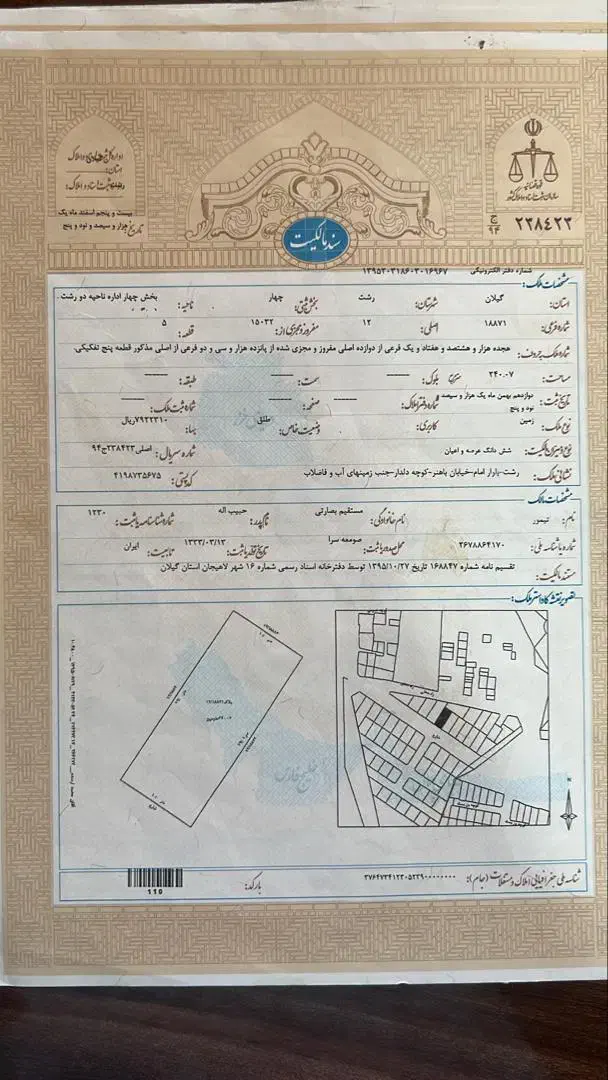 قوه قضائیه
سازمان ثبت اسناد و املاک کشور
۲۳۸۴۲۳ ج ۹۴
استان:
بیست و پنجم اسفند ماه یک
تاریخ: هزار و سیصد و نود و پنج
سند مالکیت
شماره دفتر الکترونیکی ۱۳۹۵۲۰۳۱۸۶۰۳۰۱۶۹۶۷
مشخصات ملک:
استان: گیلان شهرستان: رشت بخش ثبتی: چهار ناحیه: بخش چهار اداره ناحیه دو رشت .
شماره فرعی: ۱۸۸۷۱ اصلی: ۱۲ مفروز و مجزی از: ۱۵۰۳۲ قطعه: ۵
شماره ملک بحروف: هجده هزار و هشتصد و هفتاد و یک فرعی از دوازده اصلی مفروز و مجزی شده از پانزده هزار و سی و دو فرعی از اصلی مذکور قطعه پنج تفکیکی.
مساحت: ۲۴۰.۰۷ مترمربع بلوک: ــــــ سمت: ــــــ طبقه: ــــــ
تاریخ ثبت: دوازدهم بهمن ماه یک هزار و سیصد و نود و پنج شماره دفتر املاک: ــــــ صفحه: ــــــ شماره ثبت ملک: ــــــ
نوع ملک: زمین کاربری: وضعیت خاص: طلق بهاء: ۷۹۲۲۳۱۰ریال
نوع و میزان مالکیت: شش دانگ عرصه و اعیان شماره سریال: اصلی۲۳۸۴۲۳ج۹۴
نشانی ملک: رشت-پارار امام-خیابان باهنر-کوچه دلدار-جنب زمینهای آب و فاضلاب کد پستی: ۴۱۹۸۷۳۵۶۷۵
مشخصات مالک
نام: تیمور نام خانوادگی: مستقیم بصارتی نام پدر: حبیب اله شماره شناسنامه یا ثبت: ۱۲۳۰
شماره یا شناسه ملی: ۲۶۷۸۸۶۴۱۷۰ محل صدور یا ثبت: صومعه سرا تاریخ تولد یا ثبت: ۱۳۳۳/۰۳/۱۲ تابعیت: ایران
مستند مالکیت: تقسیم نامه شماره ۱۶۸۸۴۷ تاریخ ۱۳۹۵/۱۰/۲۷ توسط دفترخانه اسناد رسمی شماره ۱۶ شهر لاهیجان استان گیلان
تصویر نقشه کاداستر ملک:
خلیج فارس
شناسه ملی جغرافیایی املاک و مستغلات (جام): ۳۷۶۴۷۳۴۱۲۳۰۵۲۳۹۰۰۰۰۰۰۰۰
بارکد:
110